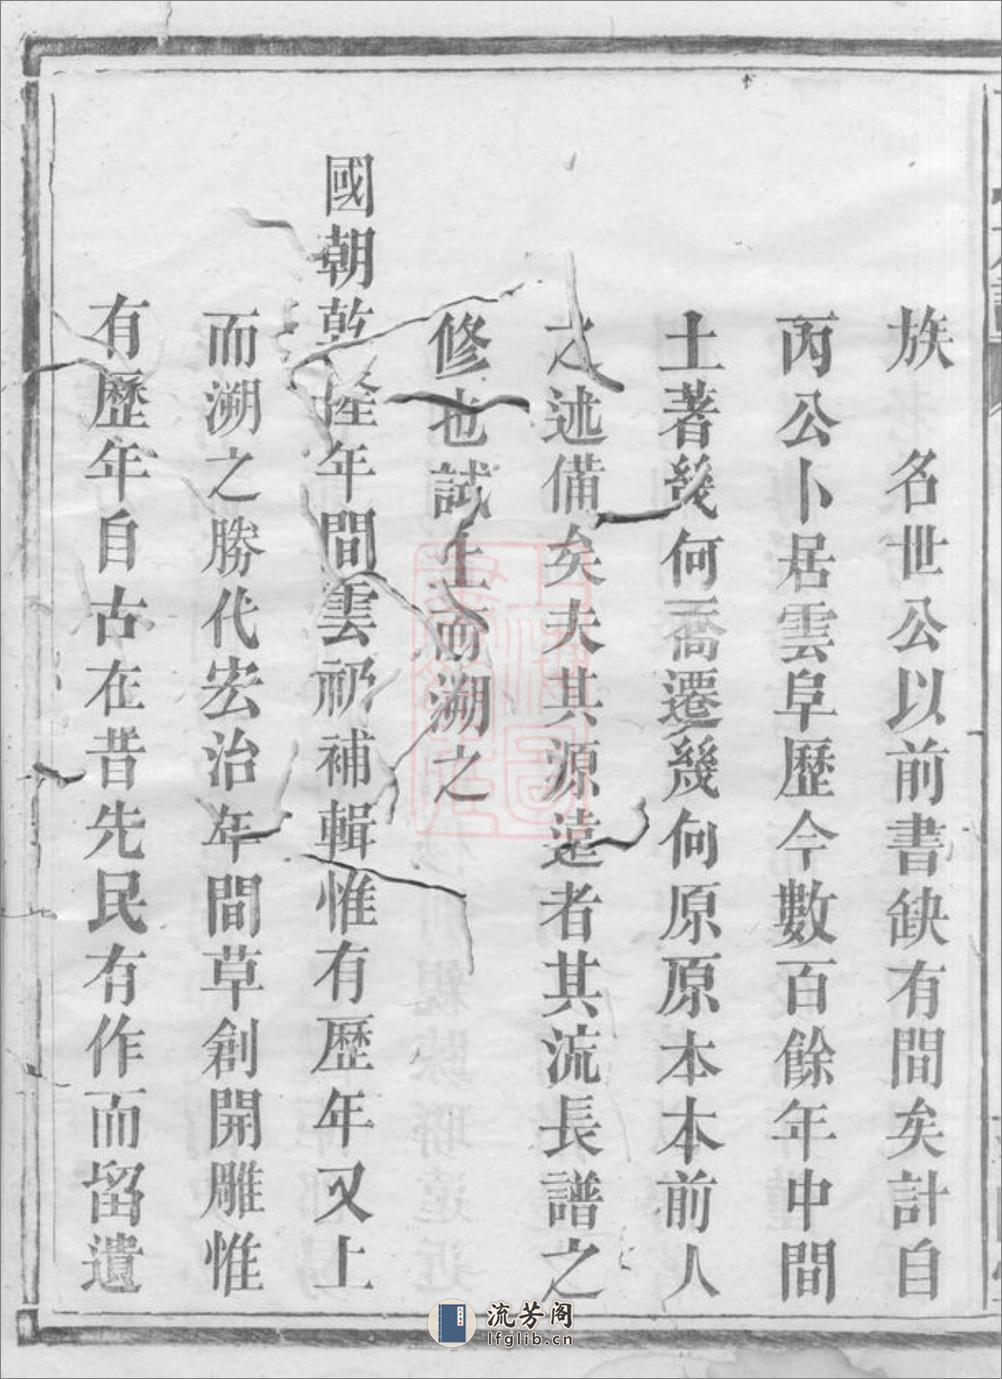 族　名世公以前書缺有間矣計自
丙公卜居雲阜歷今數百餘年中間
土著幾何喬遷幾何原原本本前人
之述備矣夫其源遠者其流長譜之
修也試上而溯之
國朝乾隆年間雲礽補輯惟有歷年又上
而溯之勝代宏治年間草創開雕惟
有歷年自古在昔先民有作而留遺
流芳阁
lfglib.cn